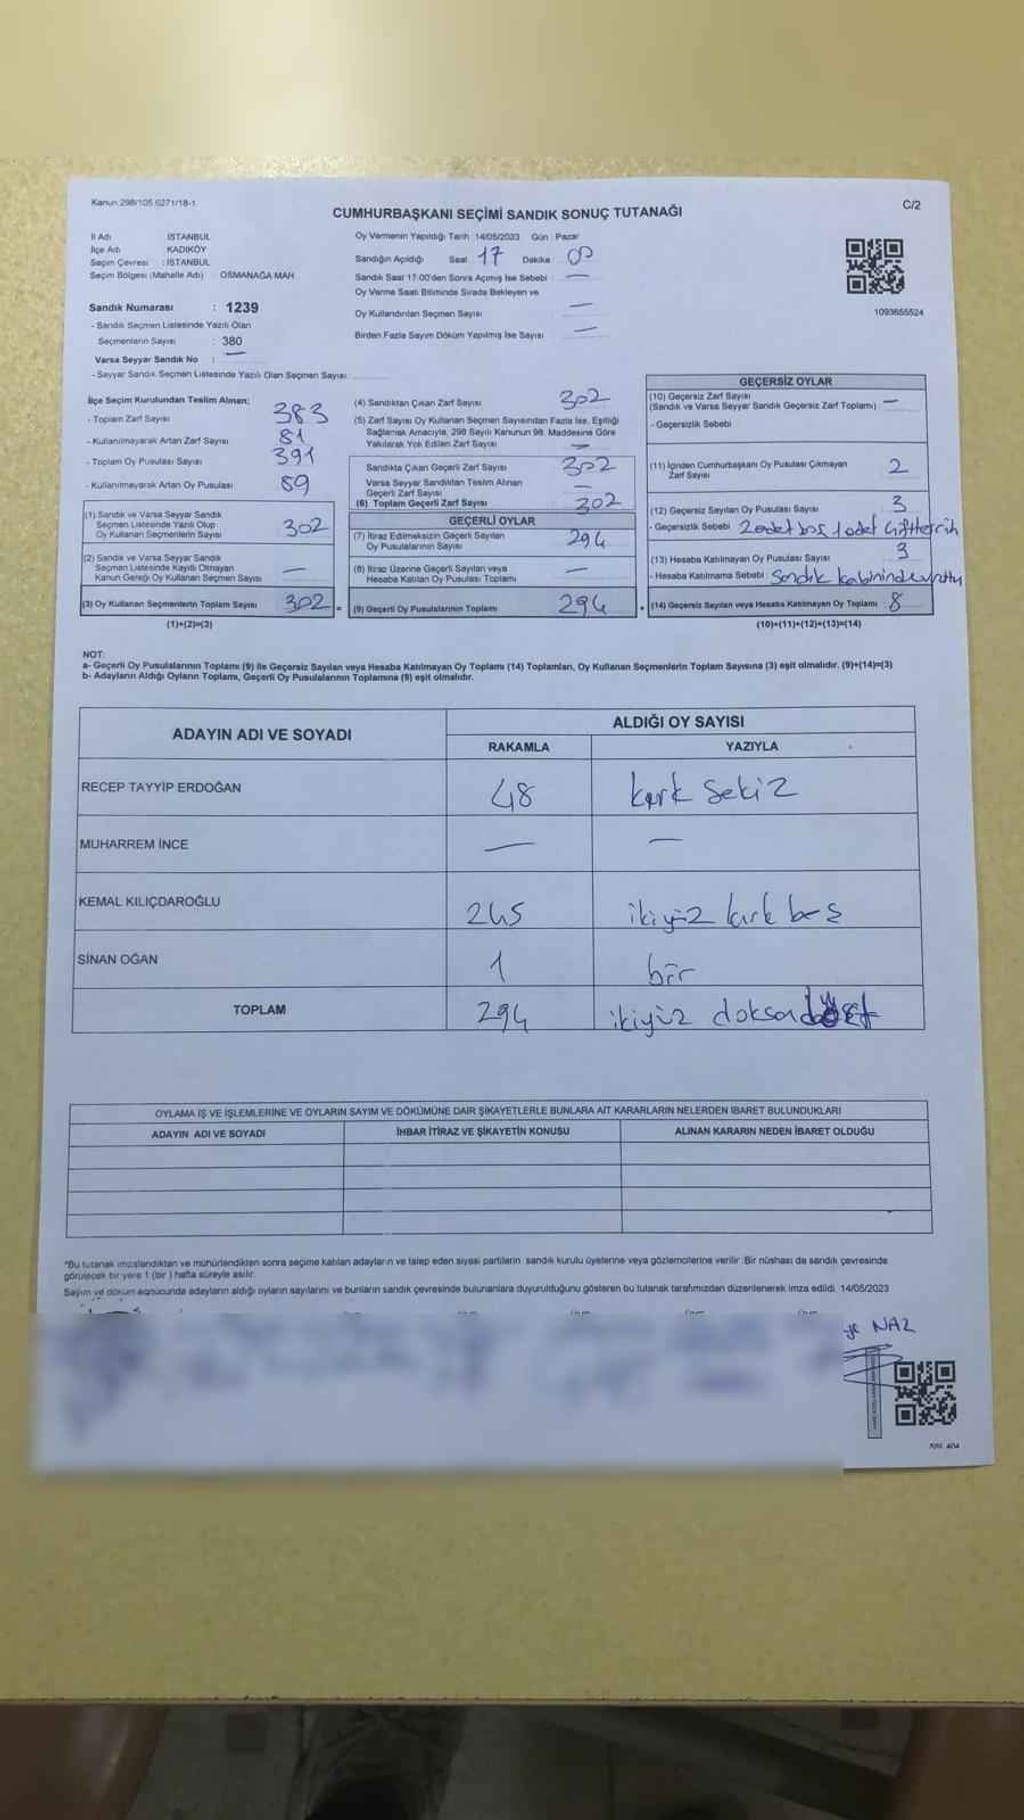 Kanun:298/105,6271/18-1
C/2
CUMHURBAŞKANI SEÇİMİ SANDIK SONUÇ TUTANAĞI
İl Adı İSTANBUL
İlçe Adı KADIKÖY
Seçim Çevresi : İSTANBUL
Seçim Bölgesi (Mahalle Adı) OSMANAĞA MAH
Sandık Numarası : 1239
- Sandık Seçmen Listesinde Yazılı Olan
Seçmenlerin Sayısı : 380
Varsa Seyyar Sandık No : —
- Seyyar Sandık Seçmen Listesinde Yazılı Olan Seçmen Sayısı
Oy Vermenin Yapıldığı Tarih : 14/05/2023 Gün : Pazar
Sandığın Açıldığı Saat 17 Dakika
Sandık Saat 17:00'den Sonra Açılmış İse Sebebi : —
Oy Verme Saati Bitiminde Sırada Bekleyen ve
Oy Kullandırılan Seçmen Sayısı —
Birden Fazla Sayım Döküm Yapılmış İse Sayısı —
1093655524
İlçe Seçim Kurulundan Teslim Alınan;
- Toplam Zarf Sayısı 383
- Kullanılmayarak Artan Zarf Sayısı 81
- Toplam Oy Pusulası Sayısı 391
- Kullanılmayarak Artan Oy Pusulası 89
(1) Sandık ve Varsa Seyyar Sandık
Seçmen Listesinde Yazılı Olup
Oy Kullanan Seçmenlerin Sayısı 302
(2) Sandık ve Varsa Seyyar Sandık
Seçmen Listesinde Kayıtlı Olmayan
Kanun Gereği Oy Kullanan Seçmen Sayısı —
(3) Oy Kullanan Seçmenlerin Toplam Sayısı 302 =
(1)+(2)=(3)
(4) Sandıktan Çıkan Zarf Sayısı 302
(5) Zarf Sayısı Oy Kullanan Seçmen Sayısından Fazla İse, Eşitliği
Sağlamak Amacıyla, 298 Sayılı Kanunun 98. Maddesine Göre
Yakılarak Yok Edilen Zarf Sayısı —
Sandıkta Çıkan Geçerli Zarf Sayısı 302
Varsa Seyyar Sandıktan Teslim Alınan
Geçerli Zarf Sayısı —
(6) Toplam Geçerli Zarf Sayısı 302
GEÇERLİ OYLAR
(7) İtiraz Edilmeksizin Geçerli Sayılan
Oy Pusulalarının Sayısı 294
(8) İtiraz Üzerine Geçerli Sayılan veya
Hesaba Katılan Oy Pusulası Toplamı —
(9) Geçerli Oy Pusulalarının Toplamı 294 +
GEÇERSİZ OYLAR
(10) Geçersiz Zarf Sayısı
(Sandık ve Varsa Seyyar Sandık Geçersiz Zarf Toplamı) —
- Geçersizlik Sebebi
(11) İçinden Cumhurbaşkanı Oy Pusulası Çıkmayan
Zarf Sayısı 2
(12) Geçersiz Sayılan Oy Pusulası Sayısı 3
- Geçersizlik Sebebi 2 adet boş 1 adet çift tercih
(13) Hesaba Katılmayan Oy Pusulası Sayısı 3
- Hesaba Katılmama Sebebi Sandık kabininde
(14) Geçersiz Sayılan veya Hesaba Katılmayan Oy Toplamı : 8
(10)+(11)+(12)+(13)=(14)
NOT:
a- Geçerli Oy Pusulalarının Toplamı (9) ile Geçersiz Sayılan veya Hesaba Katılmayan Oy Toplamı (14) Toplamları, Oy Kullanan Seçmenlerin Toplam Sayısına (3) eşit olmalıdır. (9)+(14)=(3)
b- Adayların Aldığı Oyların Toplamı, Geçerli Oy Pusulalarının Toplamına (9) eşit olmalıdır.
ADAYIN ADI VE SOYADI
ALDIĞI OY SAYISI
RAKAMLA YAZIYLA
RECEP TAYYİP ERDOĞAN 48 kırk sekiz
MUHARREM İNCE — —
KEMAL KILIÇDAROĞLU 245 ikiyüz kırk beş
SİNAN OĞAN 1 bir
TOPLAM 294 ikiyüz doksandört
OYLAMA İŞ VE İŞLEMLERİNE VE OYLARIN SAYIM VE DÖKÜMÜNE DAİR ŞİKAYETLERLE BUNLARA AİT KARARLARIN NELERDEN İBARET BULUNDUKLARI
ADAYIN ADI VE SOYADI İHBAR İTİRAZ VE ŞİKAYETİN KONUSU ALINAN KARARIN NEDEN İBARET OLDUĞU
*Bu tutanak imzalandıktan ve mühürlendikten sonra seçime katılan adayların ve talep eden siyasi partilerin sandık kurulu üyelerine veya gözlemcilerine verilir. Bir nüshası da sandık çevresinde
görülecek bir yere 1 (bir) hafta süreyle asılır.
Sayım ve döküm sonucunda adayların aldığı oyların sayılarını ve bunların sandık çevresinde bulunanlara duyurulduğunu gösteren bu tutanak tarafımızdan düzenlenerek imza edildi. 14/05/2023
NAZ